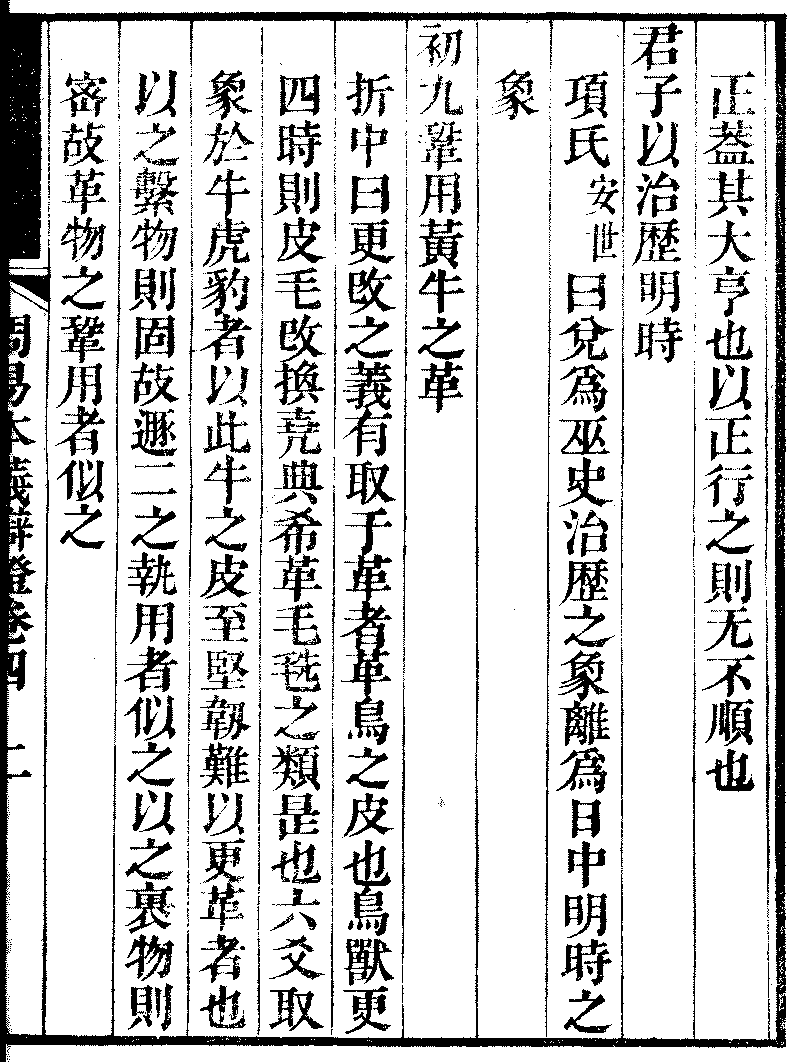 正葢其大亨也以正行之則无不順也
君子以治歷明時
項氏安世曰兌爲巫史治歷之象離爲日中明時之
象
初九鞏用黃牛之革
折中曰更改之義有取于革者革鳥之皮也鳥獸更
四時則皮毛改換堯典希革毛毨之類是也六爻取
象於牛虎豹者以此牛之皮至堅韌難以更革者也
以之繫物則固故遯二之執用者似之以之裹物則
宻故革物之鞏用者似之
周易本義辯證卷四 二